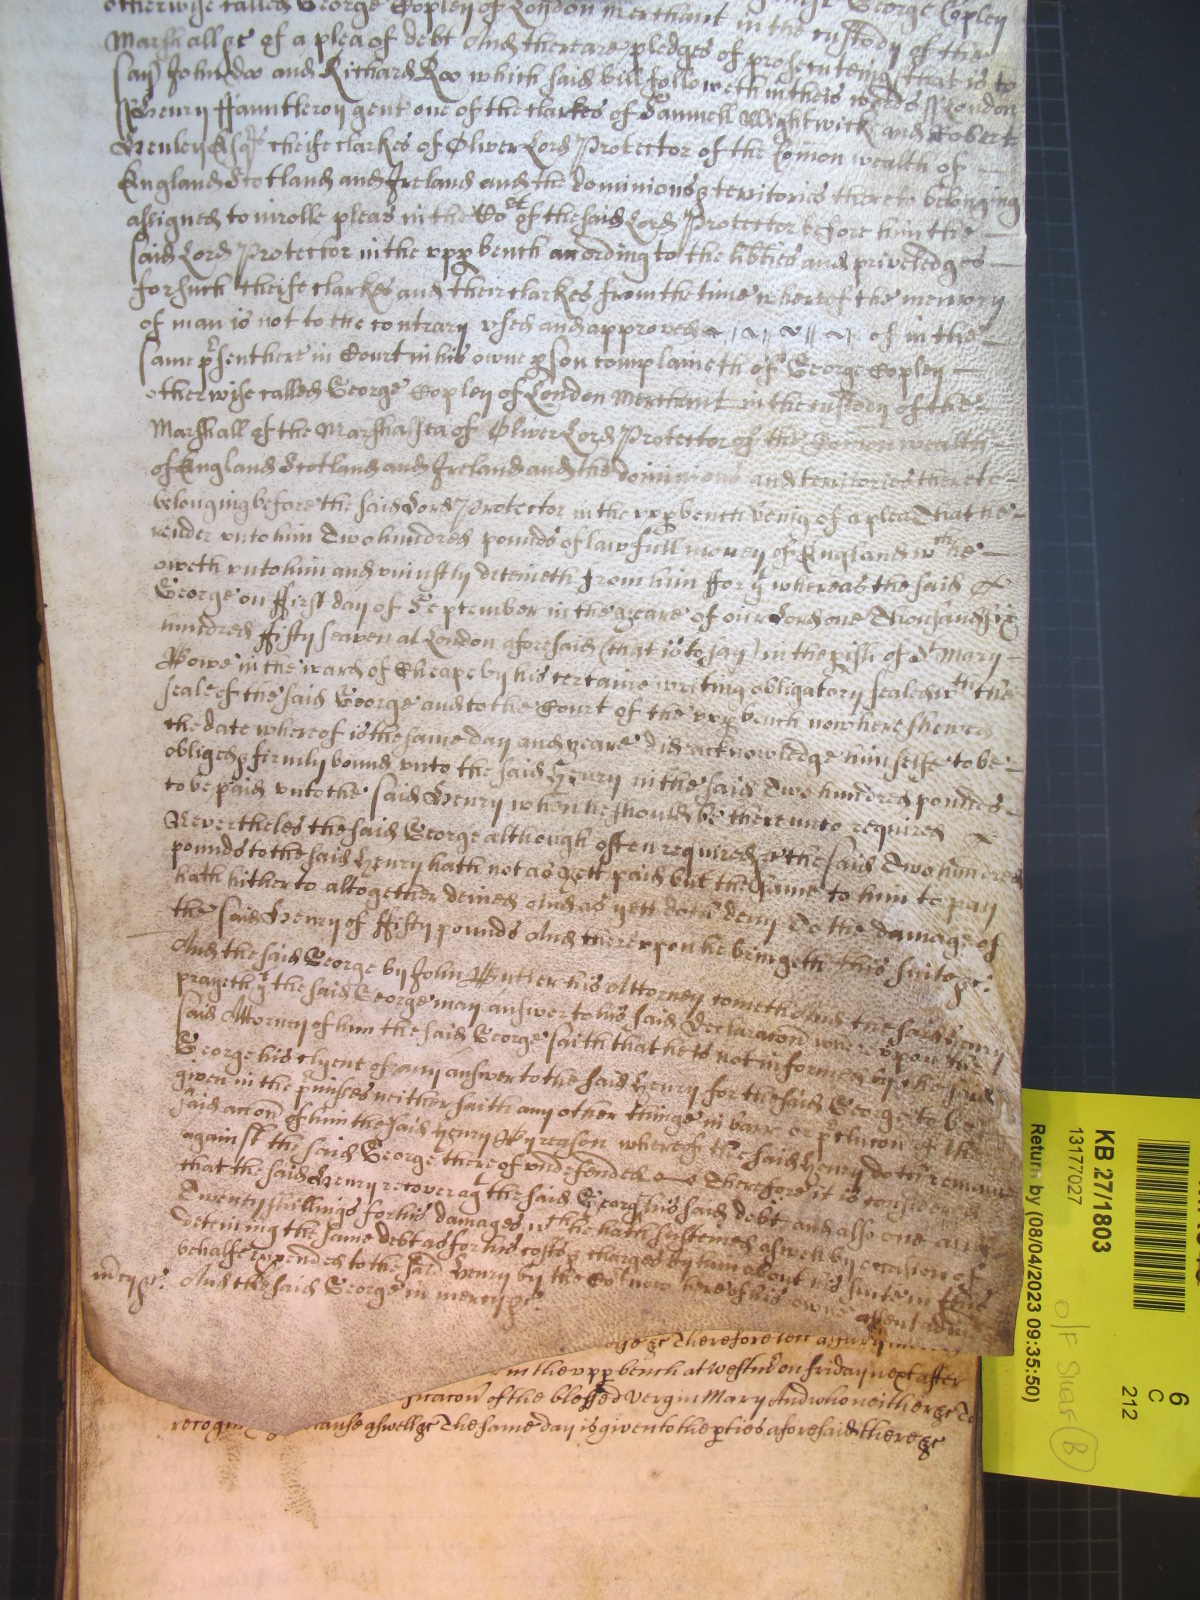 otherwise called George Copley of London merchant in the custody of the
Marshall &c of a plea of debt And there are pledges of prosecuteing (that is to
say) John Doo and Richard Roo which said bill followeth in theis words ss London
ss Henry Fauntleroy gent one of the clarkes of Samuell Wightwick and Robert
Henley Esqrs cheife clarkes of Oliver Lord Protector of the Comon wealth of
England Scotland and Ireland and the dominions & territories thereto belonging
assigned to inrolle pleas in the Cort of the said Lord Protector before him the
said Lord Protector in the vpp bench according to the libties and priveledges
for such cheife clarkes and their clarkes from the time whereof the memory
of man is not to the contrary vsed and approved of in the
same psent here in Court in his owne pson complaineth of George Copley
otherwise called George Copley of London Merchant in the custody of the
Marshall of the Marshalsea of Oliver Lord Protector of the Comon wealth
of England Scotland and Ireland and the dominions and territories thereto
belonging before the said Lord Protector in the vpp bench being of a plea that he
render vnto him Two hundred pounds of lawfull money of England wch he
oweth vnto him and vniustly deteineth from him For yt whereas the said
George on First day of September in the yeare of our Lord one Thousand six
hundred fifty seaven at London aforesaid (that is to say) in the pish of St Mary
Bowe in the ward of Cheape by his certaine writing obligatory sealed wth the
seale of the said George and to the Court of the vpp bench now here shewed
the date whereof is the same day and yeare did acknowledge himselfe to be
obliged & firmly bound vnto the said Henry in the said Two hundred pounds
to be paid vnto the said Henry when he should be there vnto required
Nevertheles the said George although often required &c the said Two hundred
pounds to the said Henry hath not as yett paid but the same to him to pay
hath hitherto altogether denied And as yett doth deny To the damage of
the said Henry of Fifty pounds And therevpon he bringeth this suite &c:
And the said George by John Butler his Attorney cometh And the said Henry
prayeth yt the said George may answer to his said Declaracon wherevpon the
said Attorney of him the said George saith that he is not informed by the said
George his clyent of any answer to the said Henry for the said George to be
given in the pmises neither saith any other thinge in barr or pclucon of the
said accon of him the said Henry By reason whereof the said Henry doth remaine
against the said George thereof vndefended Therefore it is considered
that the said Henry recover agt the said George his said debt and also one and
Twenty shillings for his damages wch he hath susteined aswell by occasion of
deteining the same debt as for his costs & charges by him about his suite in this
behalfe expended to the said Henry by the Cort now here of his owne assent adiudged
mcy &c: And the said George in mercy &c:
&c Therefore
in the vpp bench at Westmr on Friday next after
of the blessed Vergin Mary And who neither &c To
recogn cause aswell &c The same day is given to the pties aforesaid there &c
KB 27/1803
13177027
Return by (08/04/2023 09:35:50)
6
C
212
O/F Shar B